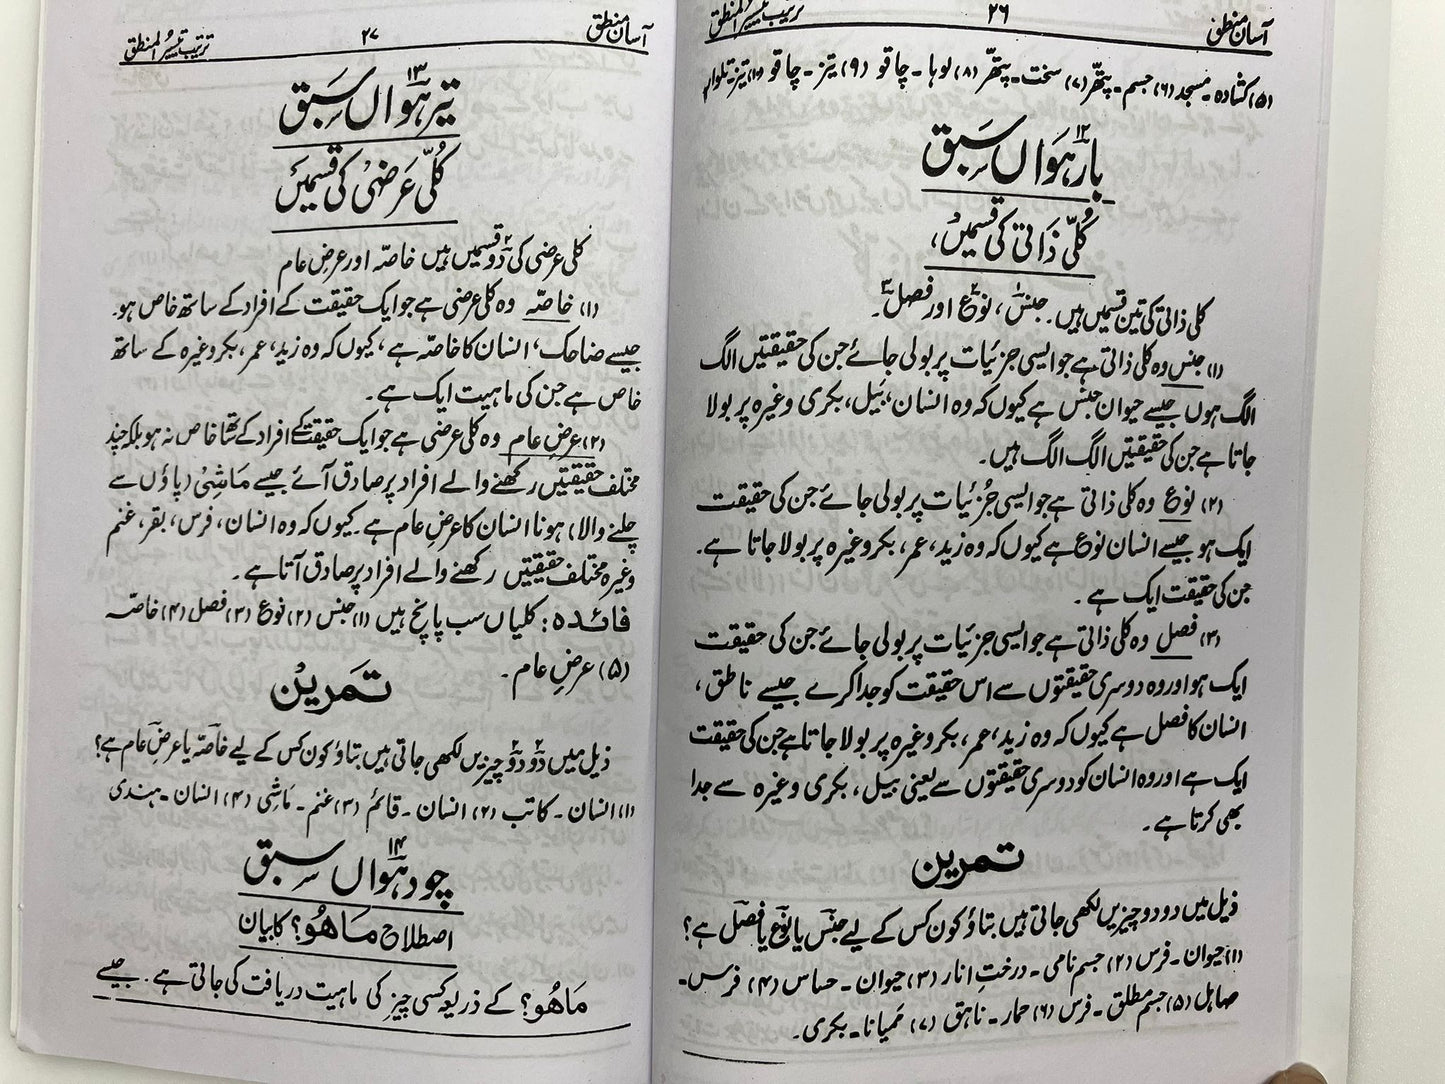 آسان منطق ۲۶ ترتیب تیسیر المنطق
(۵) کشادہ۔ مسجد (۶) جسم۔ پتھّر (۷) سخت۔ پتھّر (۸) لوہا۔ چاقو (۹) تیز۔ چاقو (۱۰) تیز۔ تلوار
بارہواں ۱۲ سبق
کُلّی ذَاتی کی قسمیں،
کلی ذاتی کی تین قسمیں ہیں۔ جنس۱، نوع۲ اور فصل۳۔
(۱) جنس وہ کلی ذاتی ہے جو ایسی جزئیات پر بولی جائے جن کی حقیقتیں الگ
الگ ہوں جیسے حیوان جنس ہے کیوں کہ وہ انسان، بَیل، بکری وغیرہ پر بولا
جاتا ہے جن کی حقیقتیں الگ الگ ہیں۔
(۲) نوع وہ کلی ذاتی ہے جو ایسی جُزئیات پر بولی جائے جن کی حقیقت
ایک ہو جیسے انسان نوع ہے کیوں کہ وہ زید، عمر، بکر وغیرہ پر بولا جاتا ہے۔
جن کی حقیقت ایک ہے۔
(۳) فصل وہ کلی ذاتی ہے جو ایسی جزئیات پر بولی جائے جن کی حقیقت
ایک ہو اور وہ دوسری حقیقتوں سے اس حقیقت کو جدا کرے جیسے ناطق،
انسان کا فصل ہے کیوں کہ وہ زید، عمر، بکر وغیرہ پر بولا جاتا ہے جن کی حقیقت
ایک ہے اور وہ انسان کو دوسری حقیقتوں سے یعنی بیل، بکری وغیرہ سے جدا
بھی کرتا ہے۔
تمرین
ذیل میں دو دو چیزیں لکھی جاتی ہیں بتاؤ کون کس کے لیے جنس یا نوع یا فصل ہے؟
(۱) حیوان۔ فرس (۲) جسم نامی۔ درختِ انار (۳) حیوان۔ حساس (۴) فرس۔
صاہل (۵) جسم مطلق۔ فرس (۶) حمار۔ ناہق (۷) مَمیانا۔ بکری۔
آسان منطق ۲۷ ترتیب تیسیرُ المنطق
تیرہواں ۱۳ سبق
کُلّی عَرَضِیْ کی قسمیں
کلی عرضی کی دو۲ قسمیں ہیں خاصّہ اور عرضِ عام
(۱) خاصّہ وہ کلی عرضی ہے جو ایک حقیقت کے افراد کے ساتھ خاص ہو۔
جیسے ضاحک، انسان کا خاصّہ ہے، کیوں کہ وہ زید، عمر، بکر وغیرہ کے ساتھ
خاص ہے جن کی ماہیت ایک ہے۔
(۲) عرضِ عام وہ کلی عرضی ہے جو ایک حقیقت کے افراد کے ساتھ خاص نہ ہو بلکہ چند
مختلف حقیقتیں رکھنے والے افراد پر صادق آئے جیسے مَاشِیْ (پاؤں سے
چلنے والا) ہونا انسان کا عرضِ عام ہے۔ کیوں کہ وہ انسان، فرس، بقر، غنم
وغیرہ مختلف حقیقتیں رکھنے والے افراد پر صادق آتا ہے۔
فائدہ: کلیاں سب پانچ ہیں (۱) جنس (۲) نوع (۳) فصل (۴) خاصّہ
(۵) عرضِ عام۔
تمرین
ذیل میں دو۲ دو۲ چیزیں لکھی جاتی ہیں بتاؤ کون کس کے لیے خاصّہ یا عرضِ عام ہے؟
(۱) انسان۔ کاتب (۲) انسان۔ قائم (۳) غنم۔ مَاشِی (۴) انسان۔ ہندی
چودہواں ۱۴ سبق
اصطلاح مَاھُوَ؟ کا بیان
مَاھُوَ؟ کے ذریعہ کسی چیز کی ماہیت دریافت کی جاتی ہے۔ جیسے